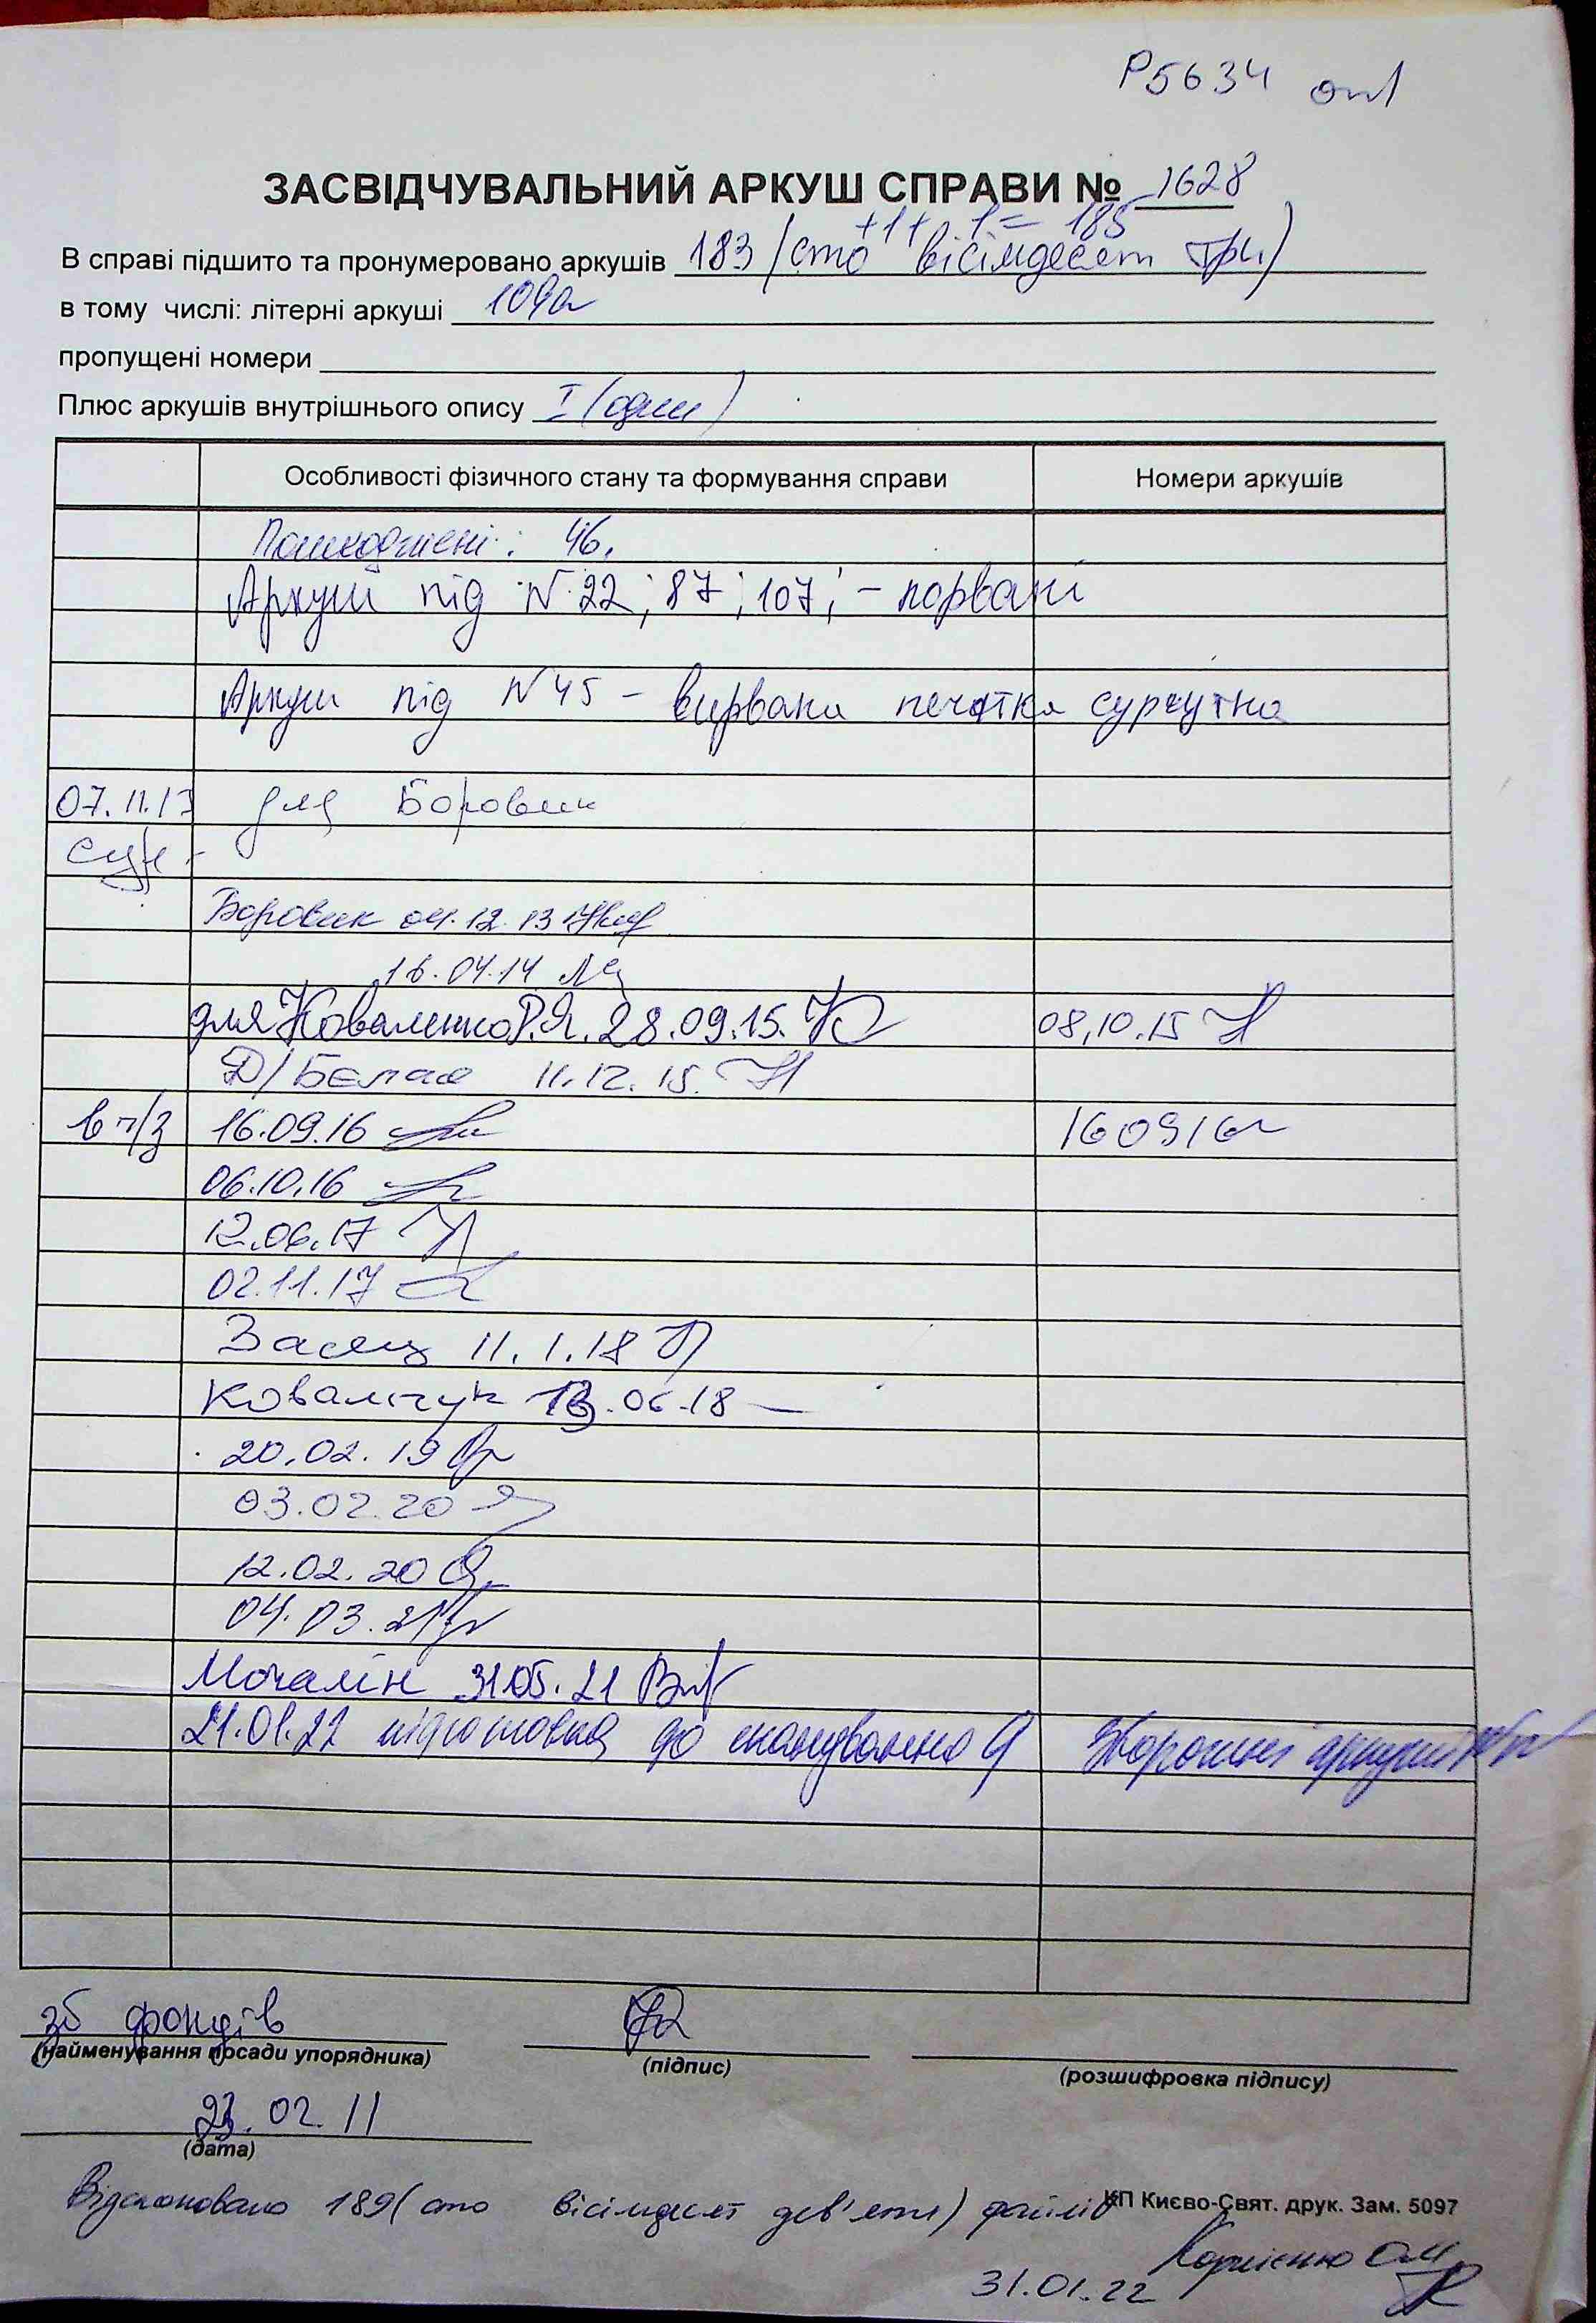 Р5634 оп1
ЗАСВІДЧУВАЛЬНИЙ АРКУШ СПРАВИ № 1628
+1+ 1= 185
В справі підшито та пронумеровано аркушів 183 (сто вісімдесят три)
в тому числі: літерні аркуші 109а
пропущені номери
Плюс аркушів внутрішнього опису I (один)
Особливості фізичного стану та формування справи Номери аркушів
Пошкоджені: 46.
Аркуші під № 22; 87; 107; - порвані
Аркуш під № 45 - вирвана печатка сургутна
07.11.13 для Боровик
Боровик 04.12.13
16.04.14
для Коваленко Р.Я. 28.09.15. 08.10.15
Д/Бєлая 11.12.15.
в ч/з 16.09.16 160916
06.10.16
12.06.17
02.11.17
Заєць 11.1.18
Ковальчук 13.06.18
20.02.19
03.02.20
12.02.20
04.03.21
Мочалін 31.05.21
21.01.22 підготовка до сканування
зб фондів
(найменування посади упорядника) (підпис) (розшифровка підпису)
23.02.11
(дата)
Відскановано 189 (сто вісімдесят дев'ять) файлів
КП Києво-Свят. друк. Зам. 5097
Корнієнко О.М.
31.01.22